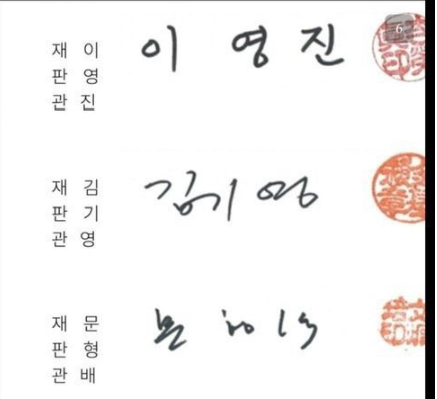 재 이
판 영
관 진
이 영 진
6
재 김
판 기
관 영
김기영
재 문
판 형
관 배